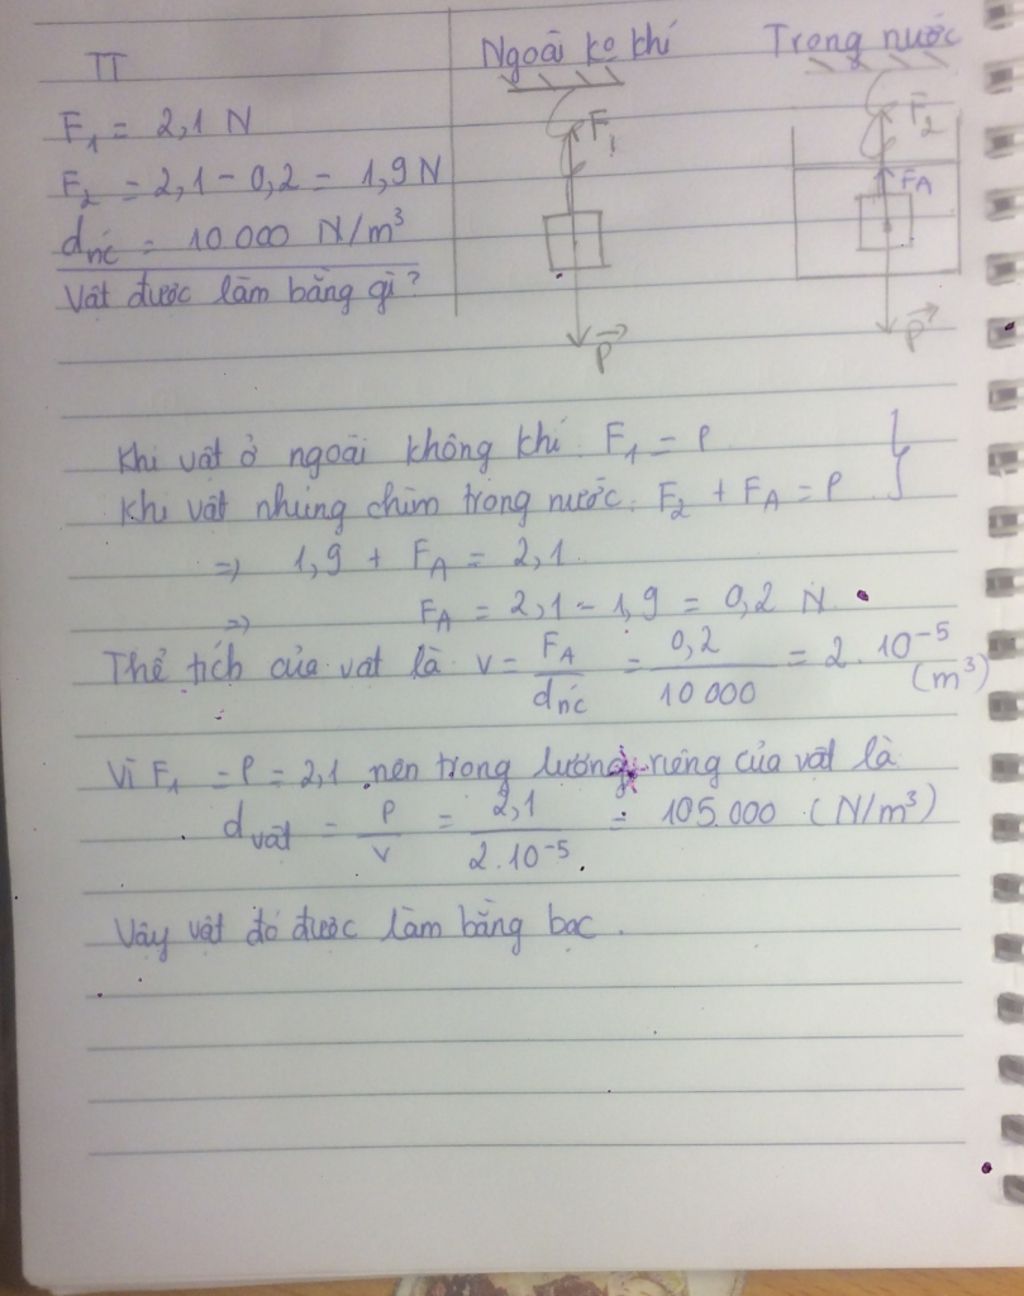 TT
F₁ = 2,1 N
F₂ = 2,1 - 0,2 = 1,9 N
dnc = 10 000 N/m³
Vật được làm bằng gì?
Ngoài ko khí
F₁
P
Trong nước
F₂
FA
P
Khi vật ở ngoài không khí: F₁ = P
Khi vật nhúng chìm trong nước: F₂ + FA = P
=> 1,9 + FA = 2,1
=> FA = 2,1 - 1,9 = 0,2 N
Thể tích của vật là: V = FA/dnc = 0,2/10 000 = 2.10⁻⁵ (m³)
Vì F₁ = P = 2,1 nên trọng lượng riêng của vật là
dvật = P/V = 2,1/2.10⁻⁵ = 105.000 (N/m³)
Vậy vật đó được làm bằng bạc.